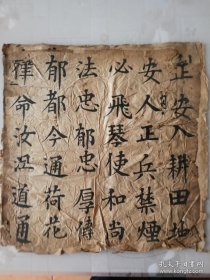 正安入耕田地
安人正兵禁煙
必飛琴使和尚
法忠郁忠厚條
郁都今通荷花
律命汝沉道通